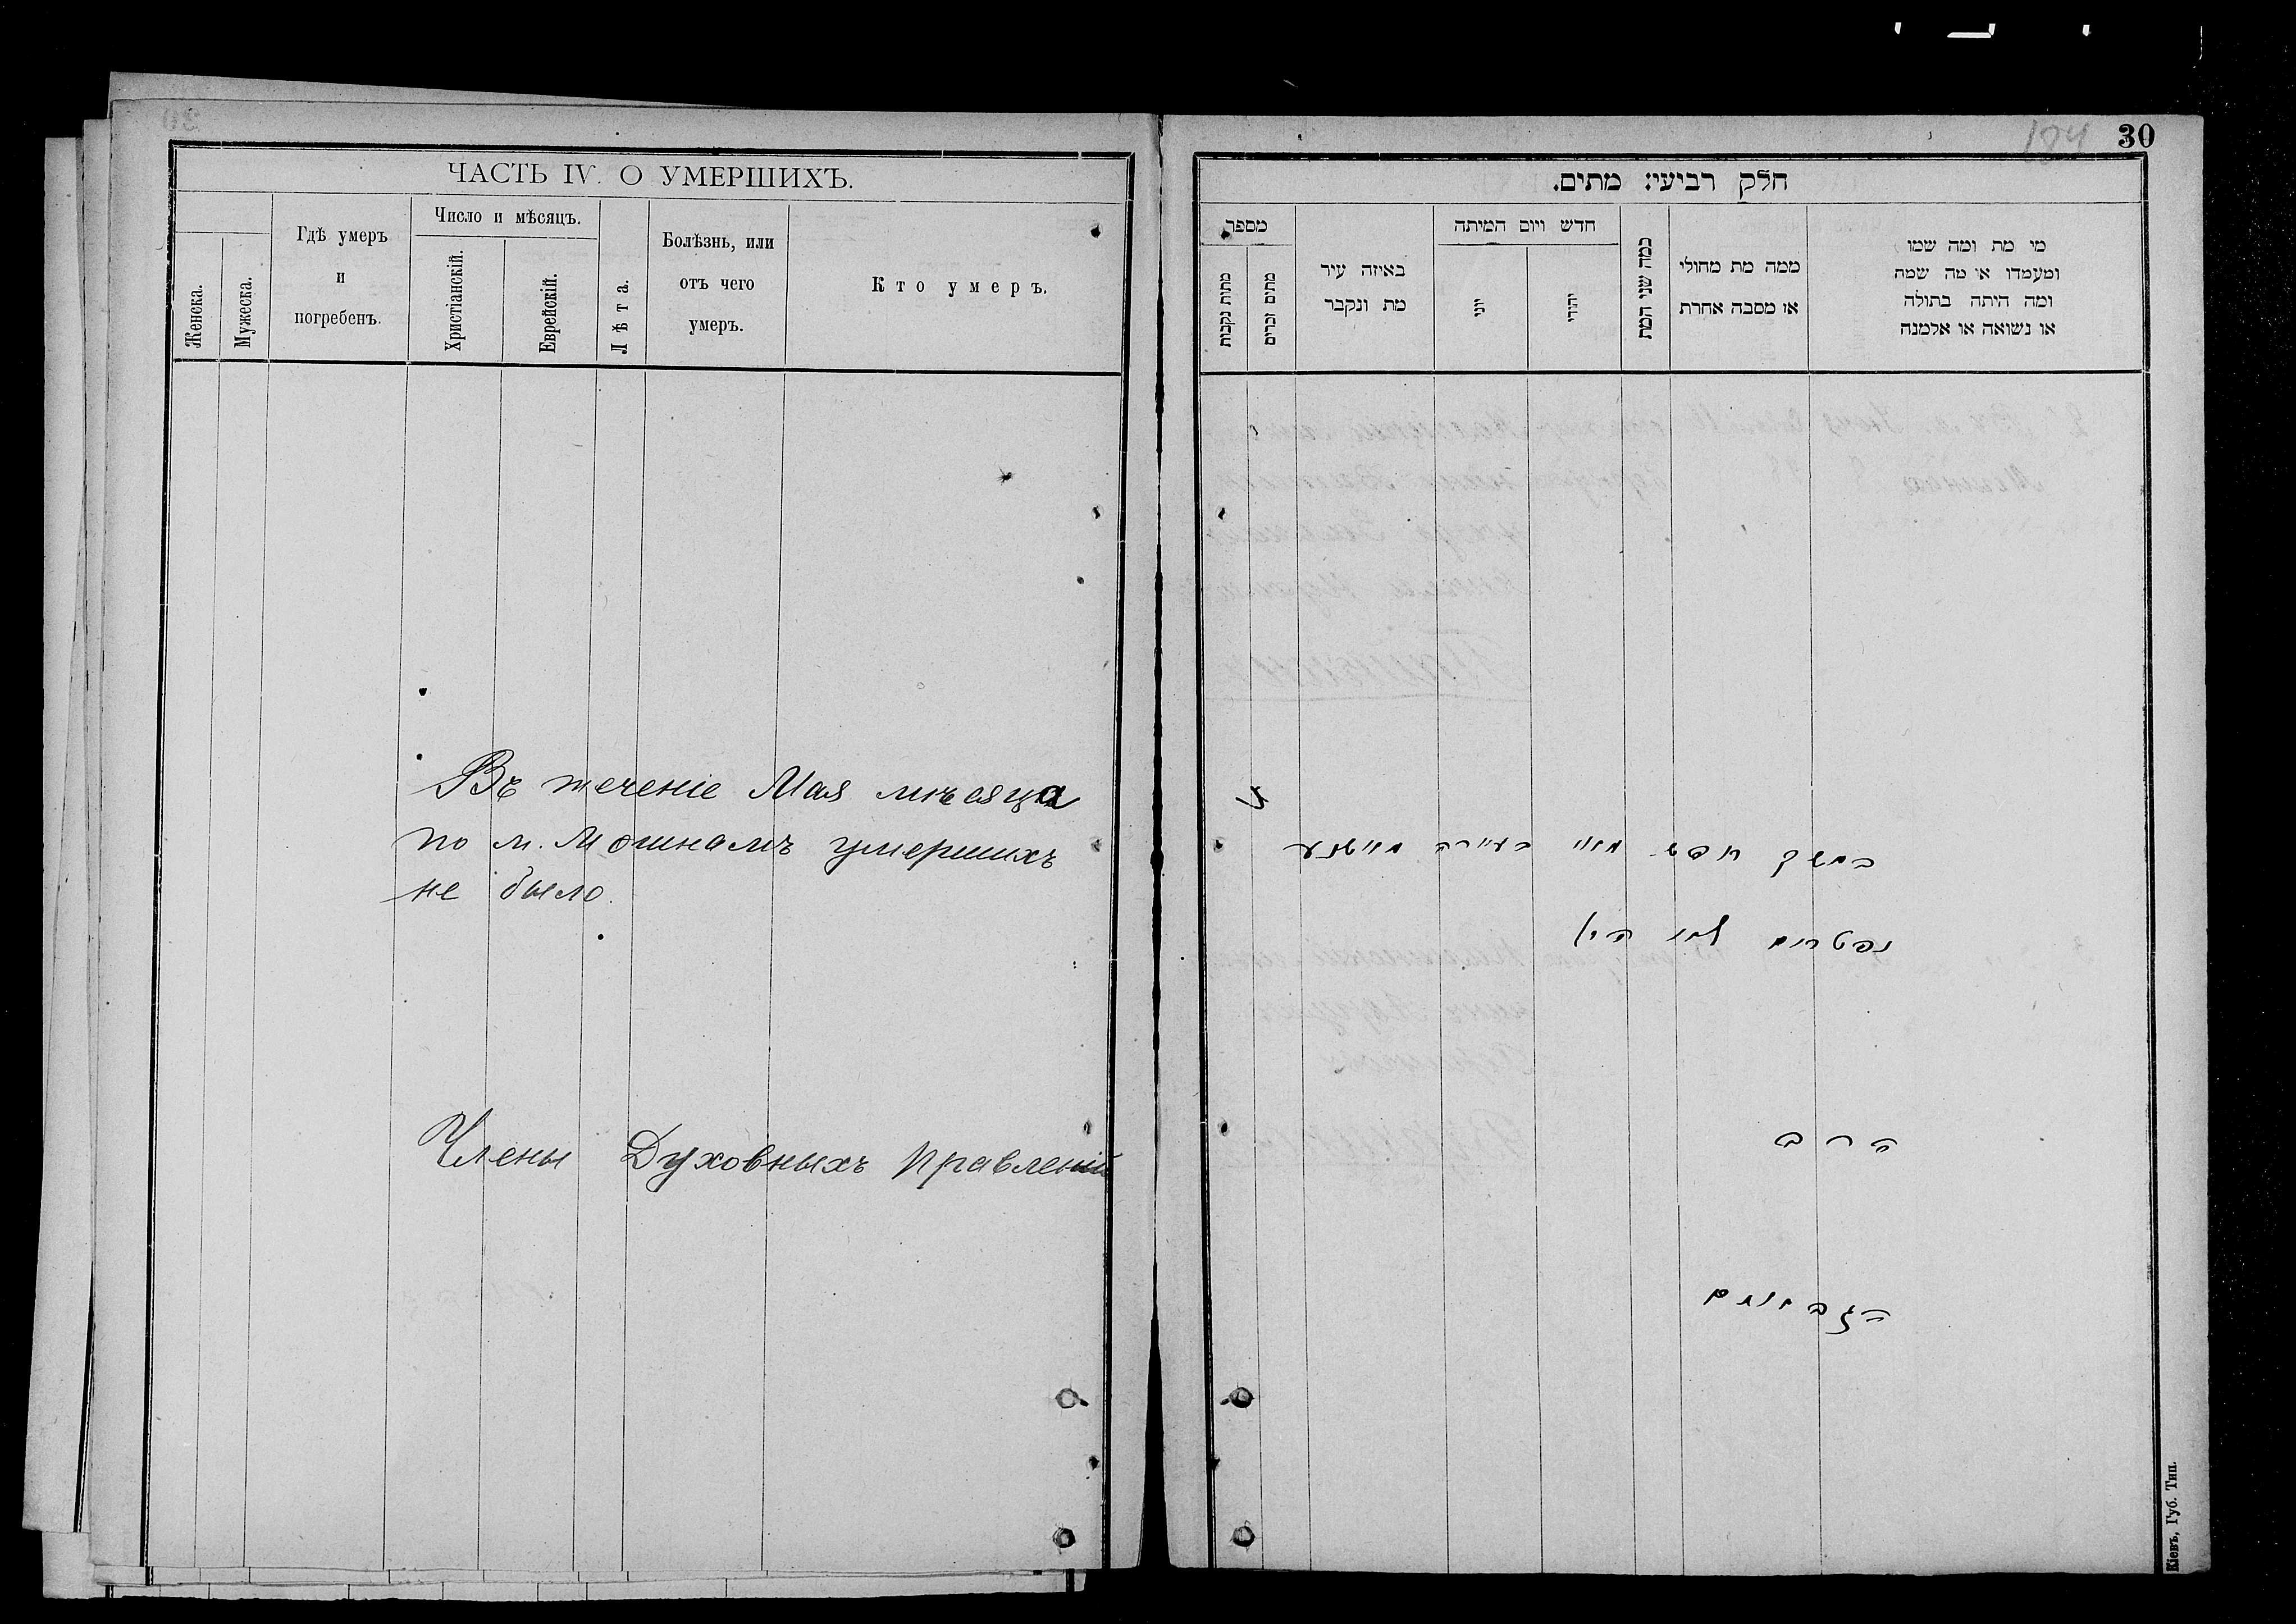 ЧАСТЬ IV. О УМЕРШИХЪ.
Женска.
Мужеска.
Гдѣ умеръ
и
погребенъ.
Число и мѣсяцъ.
Христіанскій.
Еврейскій.
Лѣта.
Болѣзнь, или
отъ чего
умеръ.
Кто умеръ.
Въ теченіе Мая мѣсяца
по м. Мошнамъ умершихъ
не было.
Члены Духовныхъ Правленій
30
חלק רביעי: מתים.
מי מת ומה שמו
ומעמדו או מה שמה
ומה היתה בתולה
או נשואה או אלמנה
ממה מת מחולי
או מסבה אחרת
כמה שני המת
חדש ויום המיתה
יהודי
יוני
באיזה עיר
מת ונקבר
מספר
מתים זכרים
מתות נקבות
במשך חדש מאי בעיירה
נפטרים לא היו
הרב
הגבאים
Кіевъ, Губ. Тип.